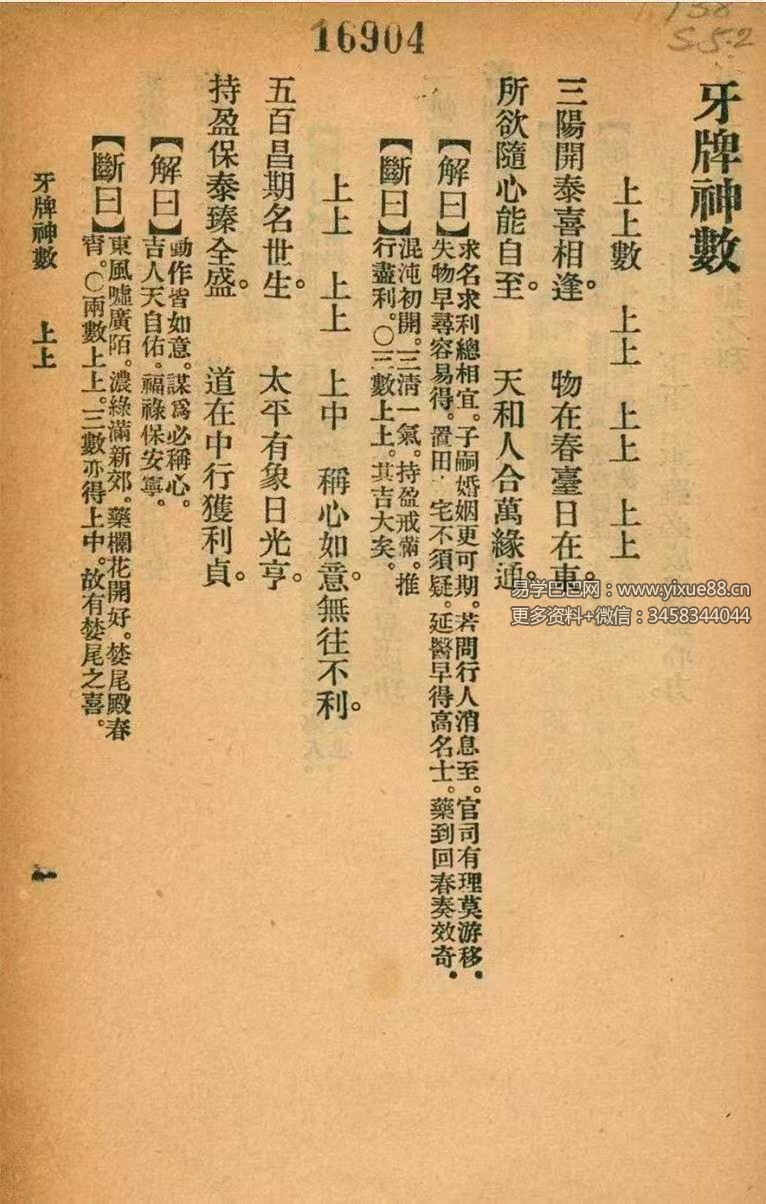 16904
S5.2
牙牌神數
上上數 上上 上上 上上
三陽開泰喜相逢。 物在春臺日在東。
所欲隨心能自至。 天和人合萬緣通。
【解曰】求名求利總相宜。子嗣婚姻更可期。若問行人消息至。官司有理莫游移。
失物早尋容易得。置田 宅不須疑。延醫早得高名士。藥到回春奏效奇。
【斷曰】混沌初開。三清一氣。持盈戒滿。推
行盡利。〇三數上上。其吉大矣。
上上 上上 上中 稱心如意。無往不利。
五百昌期名世生。 太平有象日光亨。
持盈保泰臻全盛。 道在中行獲利貞。
【解曰】動作皆如意。謀爲必稱心。
吉人天自佑。福祿保安寧。
【斷曰】東風噓廣陌。濃綠滿新郊。藥欄花開好。婪尾殿春
宵。〇兩數上上。三數亦得上中。故有婪尾之喜。
牙牌神數 上上 一
易学巴巴网：www.yixue88.cn
更多资料+微信：3458344044